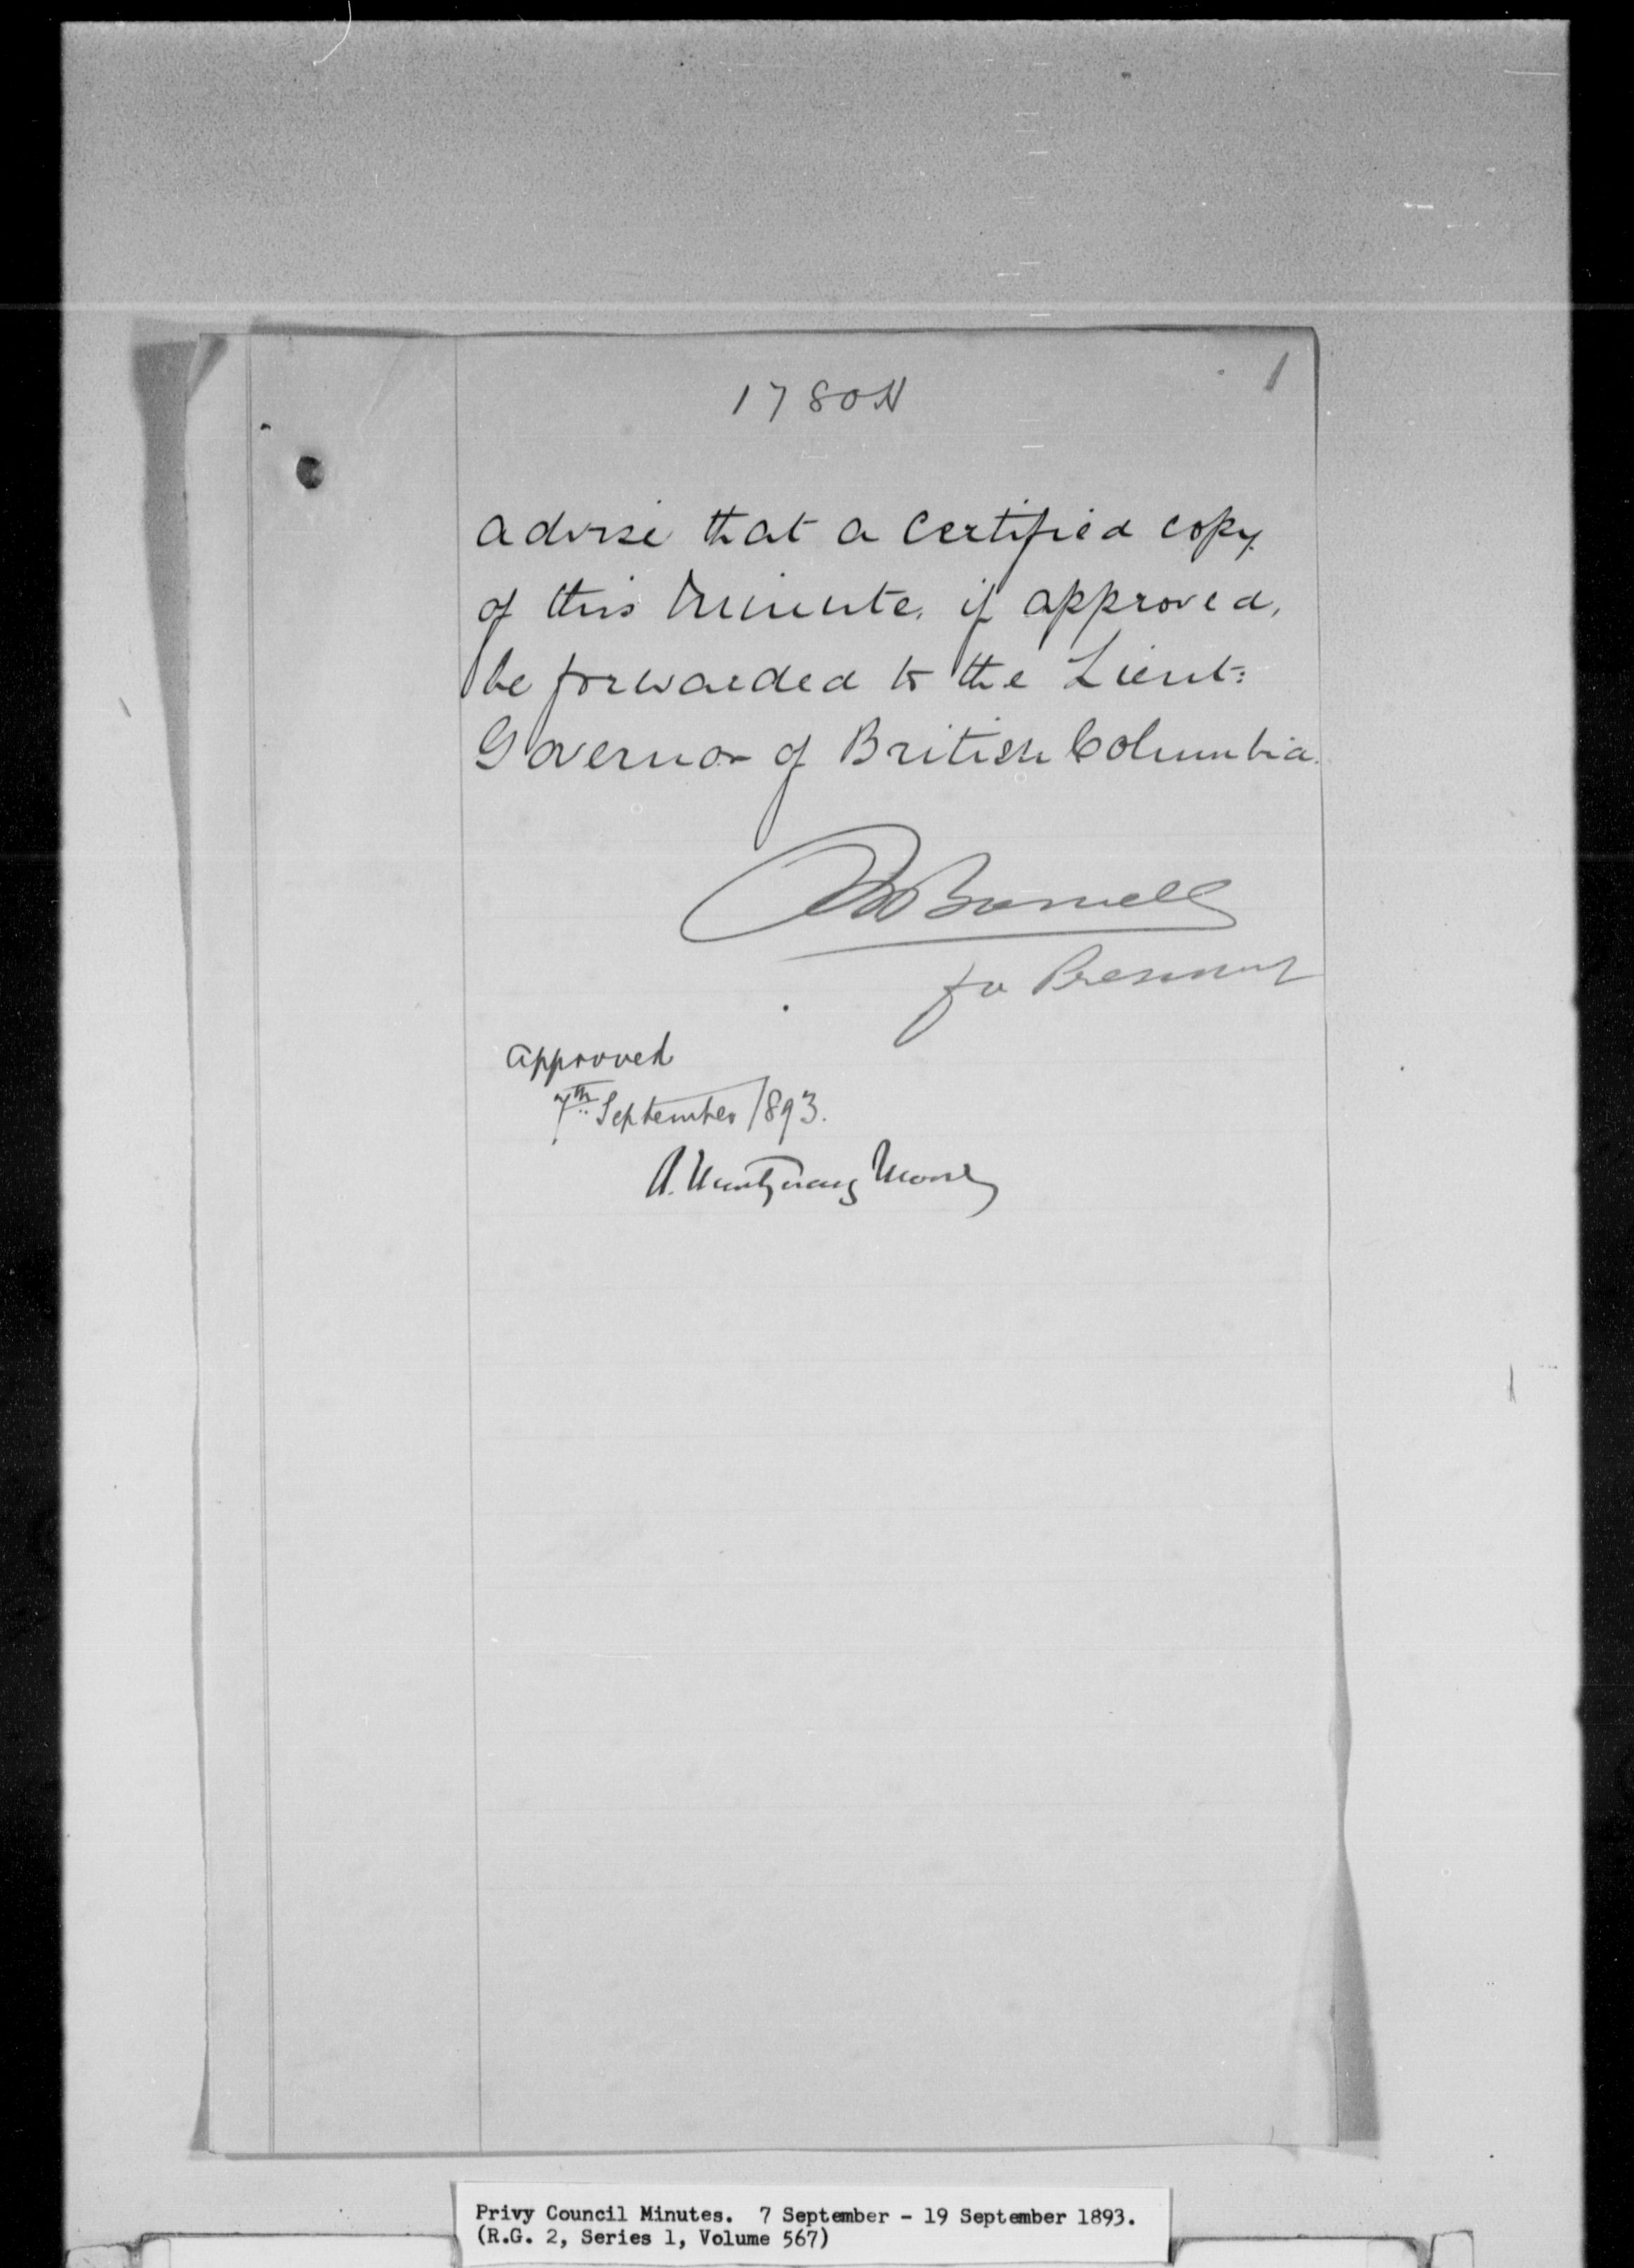 1780N
1
advise that a certified copy
of this Minute, if approved,
be forwarded to the Lieut:
Governor of British Columbia.
MBowell
for President
Approved
7th September 1893.
A. Montgomery Moore
Privy Council Minutes. 7 September - 19 September 1893.
(R.G. 2, Series 1, Volume 567)